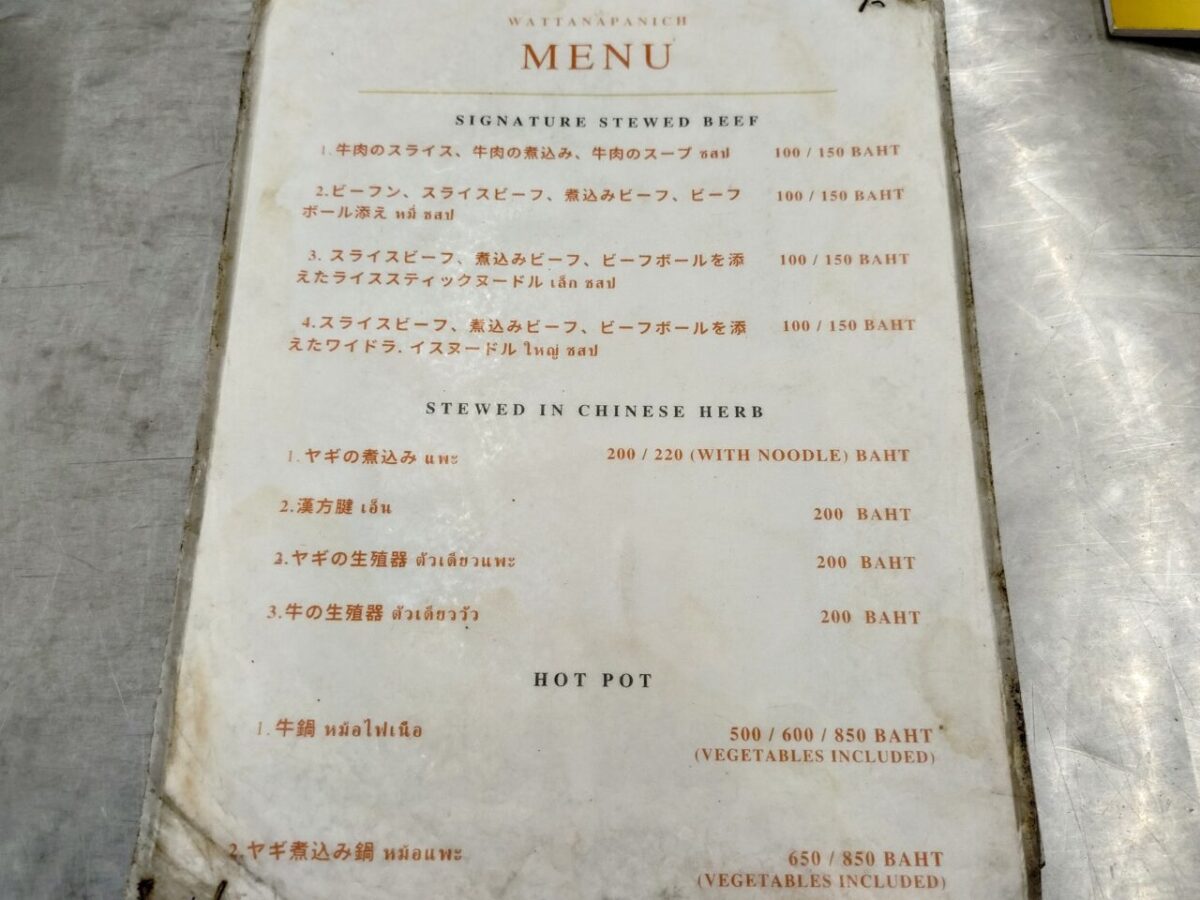 WATTANAPANICH
MENU
SIGNATURE STEWED BEEF
1.牛肉のスライス、牛肉の煮込み、牛肉のスープ ชสป 100 / 150 BAHT
2.ビーフン、スライスビーフ、煮込みビーフ、ビーフ 100 / 150 BAHT
ボール添え หมี่ ชสป
3. スライスビーフ、煮込みビーフ、ビーフボールを添 100 / 150 BAHT
えたライススティックヌードル เล็ก ชสป
4.スライスビーフ、煮込みビーフ、ビーフボールを添 100 / 150 BAHT
えたワイドラ. イスヌードル ใหญ่ ชสป
STEWED IN CHINESE HERB
1.ヤギの煮込み แพะ 200 / 220 (WITH NOODLE) BAHT
2.漢方腱 เอ็น 200 BAHT
2.ヤギの生殖器 ตัวเดียวแพะ 200 BAHT
3.牛の生殖器 ตัวเดียววัว 200 BAHT
HOT POT
1.牛鍋 หม้อไฟเนื้อ 500 / 600 / 850 BAHT
(VEGETABLES INCLUDED)
2.ヤギ煮込み鍋 หม้อแพะ 650 / 850 BAHT
(VEGETABLES INCLUDED)